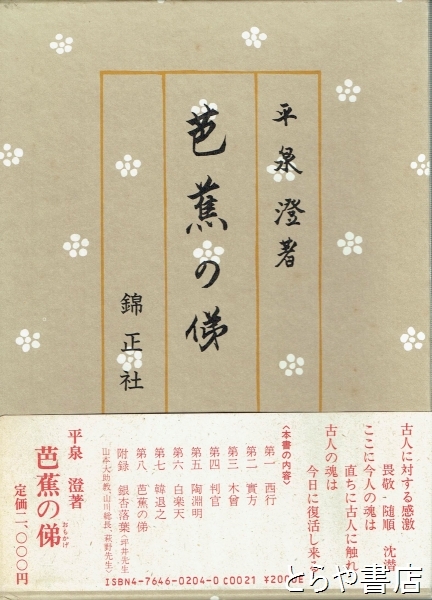 平泉澄著
芭蕉の俤
錦正社
古人に対する感激
畏敬・随順 沈潜
ここに今人の魂は
直ちに古人に触れ
古人の魂は
今日に復活し来る
〈本書の内容〉
第一 西行
第二 實方
第三 木曾
第四 判官
第五 陶淵明
第六 白楽天
第七 韓退之
第八 芭蕉の俤
附録 銀杏落葉(坪井先生
山本大助教、山川総長、萩野先生)
平泉 澄著
芭蕉の俤
おもかげ
定価二、〇〇〇円
ISBN4-7646-0204-0 C0021 ¥2000E
とらや書店